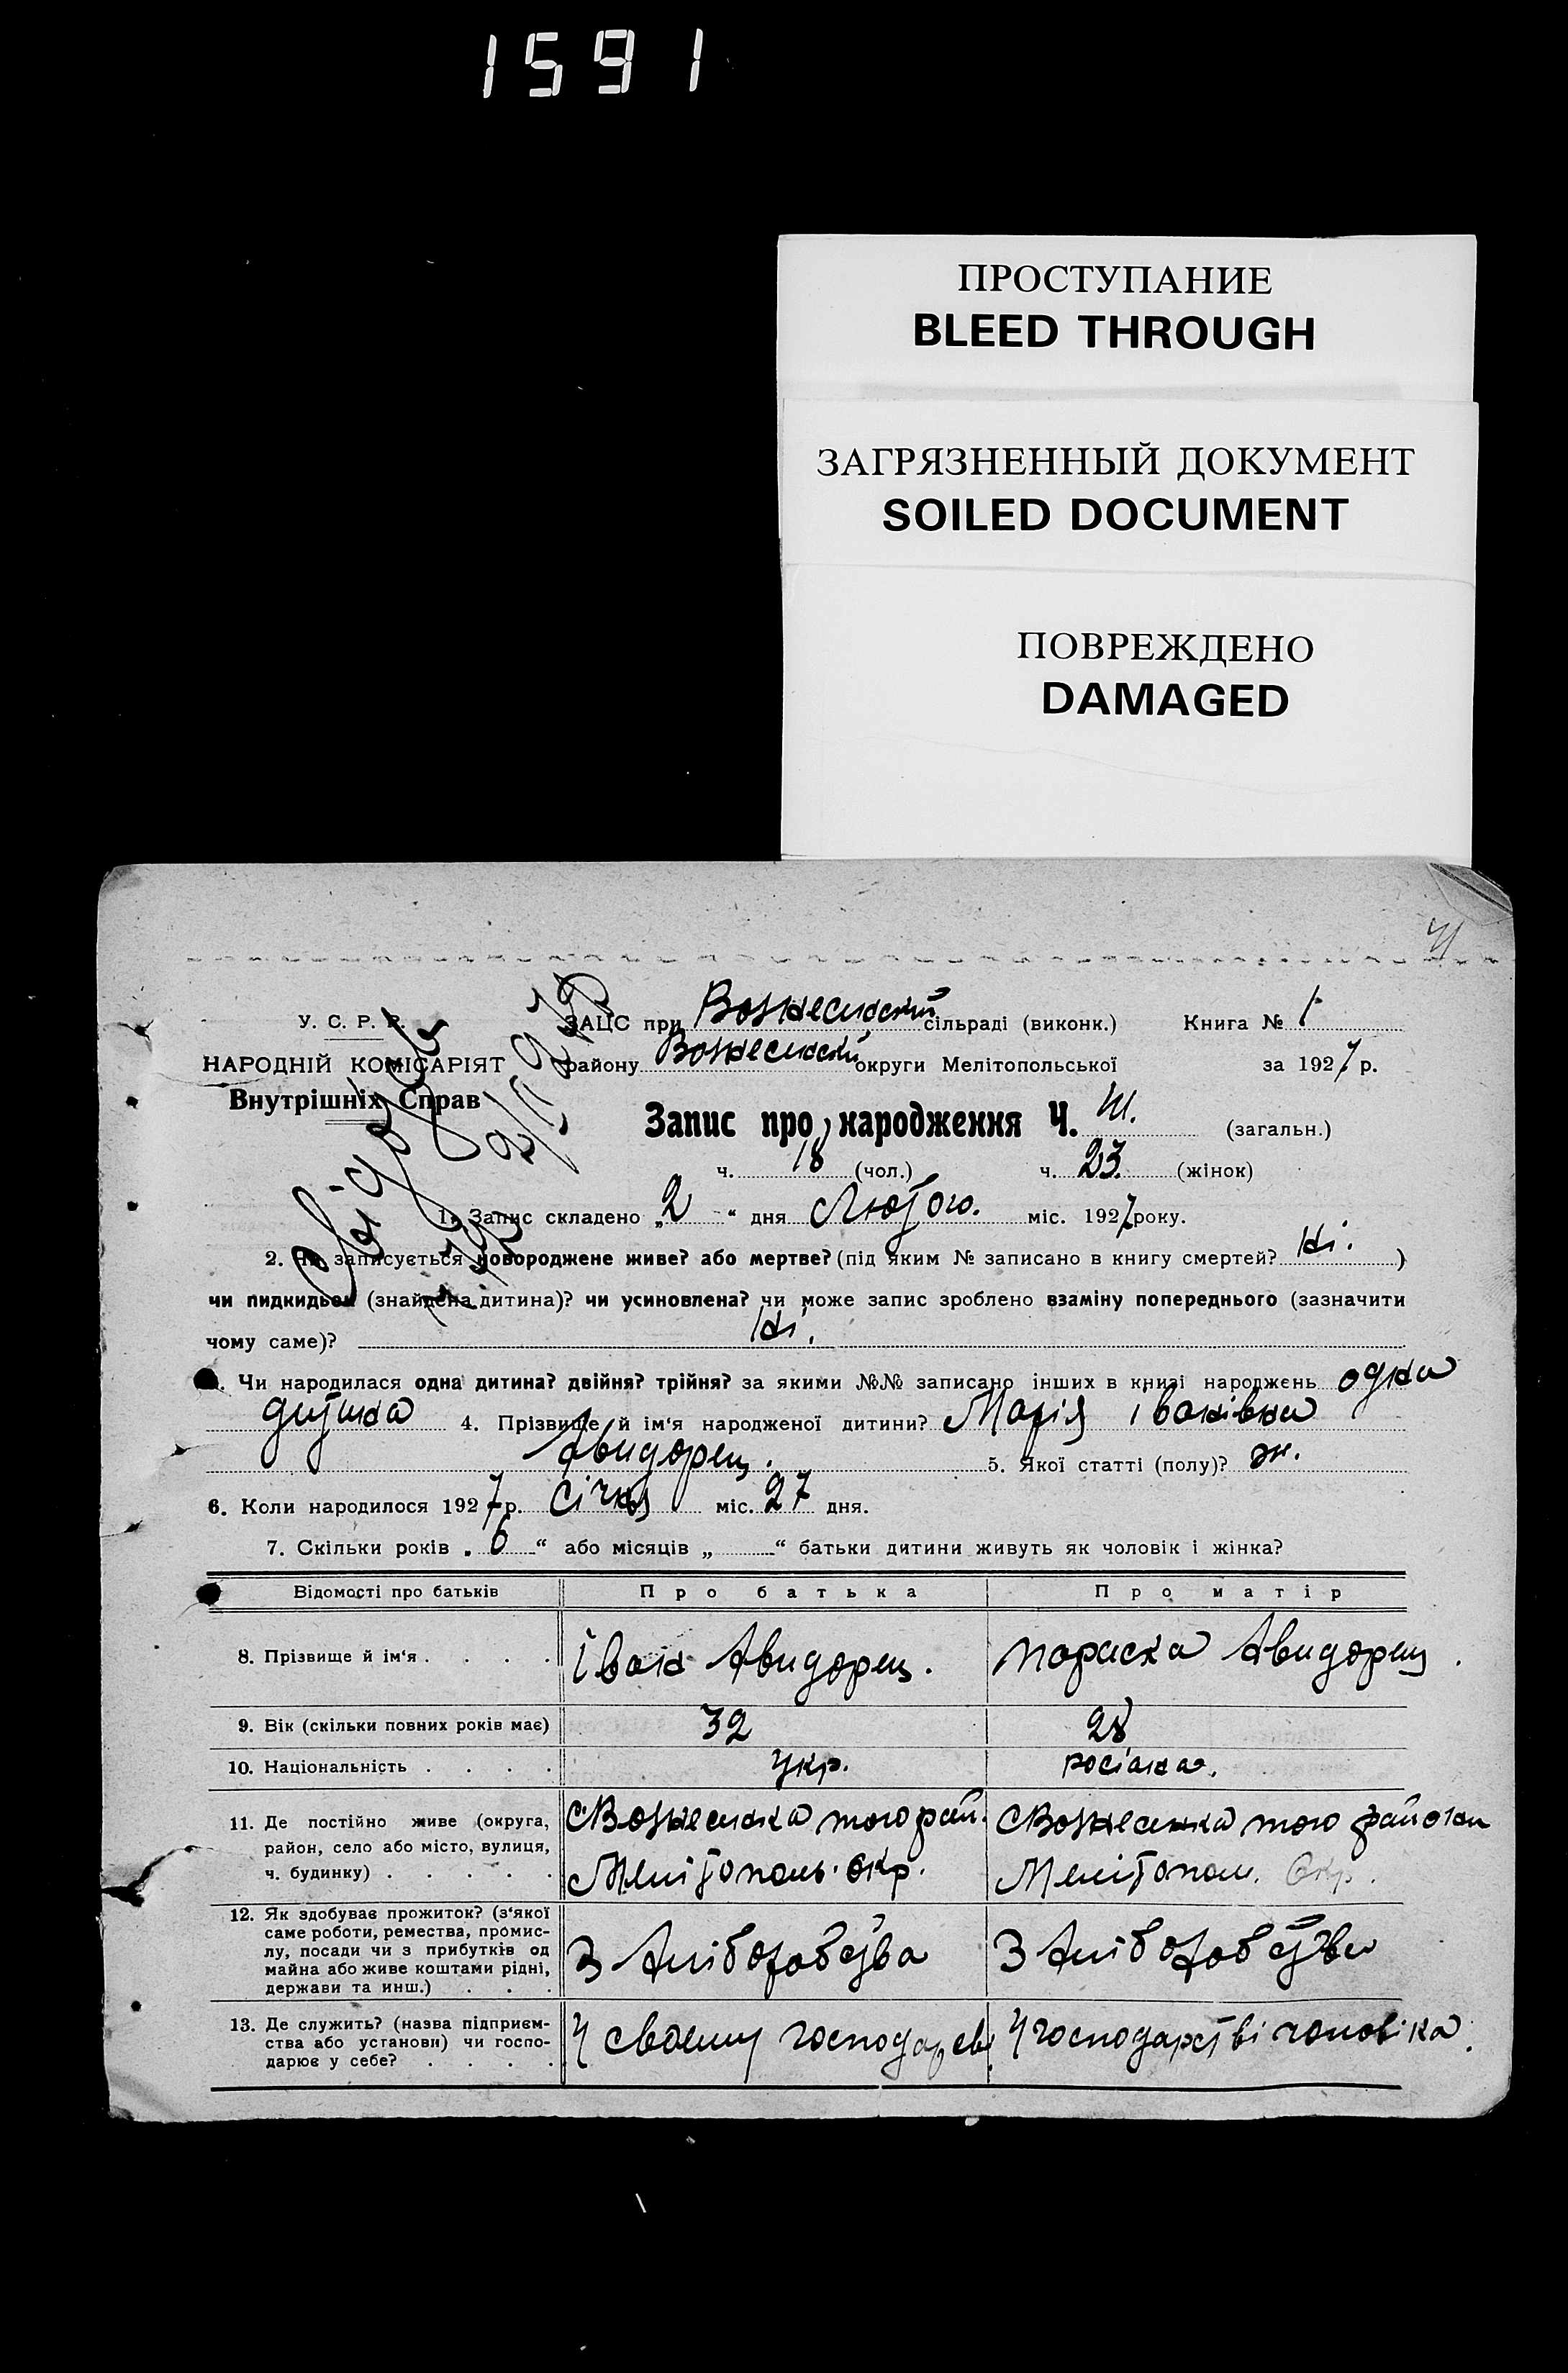 1591
ПРОСТУПАНИЕ
BLEED THROUGH
ЗАГРЯЗНЕННЫЙ ДОКУМЕНТ
SOILED DOCUMENT
ПОВРЕЖДЕНО
DAMAGED
У. С. Р. Р.
НАРОДНІЙ КОМІСАРІЯТ
Внутрішніх Справ
ЗАЦС при Вознесинский сільраді (виконк.) Книга № 1
району Вознесинский округи Мелітопольської за 1927 р.
Запис про народження Ч. 41. (загальн.)
ч. 18 (чол.) ч. 23. (жінок)
1. Запис складено „2“ дня Лютого. міс. 1927 року.
2. Чи записується новороджене живе? або мертве? (під яким № записано в книгу смертей? Ні. )
чи пидкидьок (знайдена дитина)? чи усиновлена? чи може запис зроблено взаміну попереднього (зазначити
чому саме)? Ні.
3. Чи народилася одна дитина? двійня? трійня? за якими №№ записано інших в книзі народжень одна
дитина 4. Прізвище й ім'я народженої дитини? Марія Іванівна
Авидорец. 5. Якої статті (полу)? ж.
6. Коли народилося 1927 р. Січня міс. 27 дня.
7. Скільки років „6“ або місяців „ “ батьки дитини живуть як чоловік і жінка?
Відомості про батьків Про батька Про матір
8. Прізвище й ім'я . . . . Іван Авидорец. Параска Авидорец.
9. Вік (скільки повних років має) 32 28
10. Національність . . . . Укр. росіянка.
11. Де постійно живе (округа,
район, село або місто, вулиця,
ч. будинку) . . . . .
с. Вознесинка того рай.
Мелітополь. окр.
с. Вознесинка того району
Мелітополь. Окр.
12. Як здобуває прожиток? (з'якої
саме роботи, ремества, промис-
лу, посади чи з прибутків од
майна або живе коштами рідні,
держави та инш.) . . .
З хліборобства
З хліборобства
13. Де служить? (назва підприєм-
ства або установи) чи госпо-
дарює у себе? . . . .
У своєму господарстві
У господарстві чоловіка.